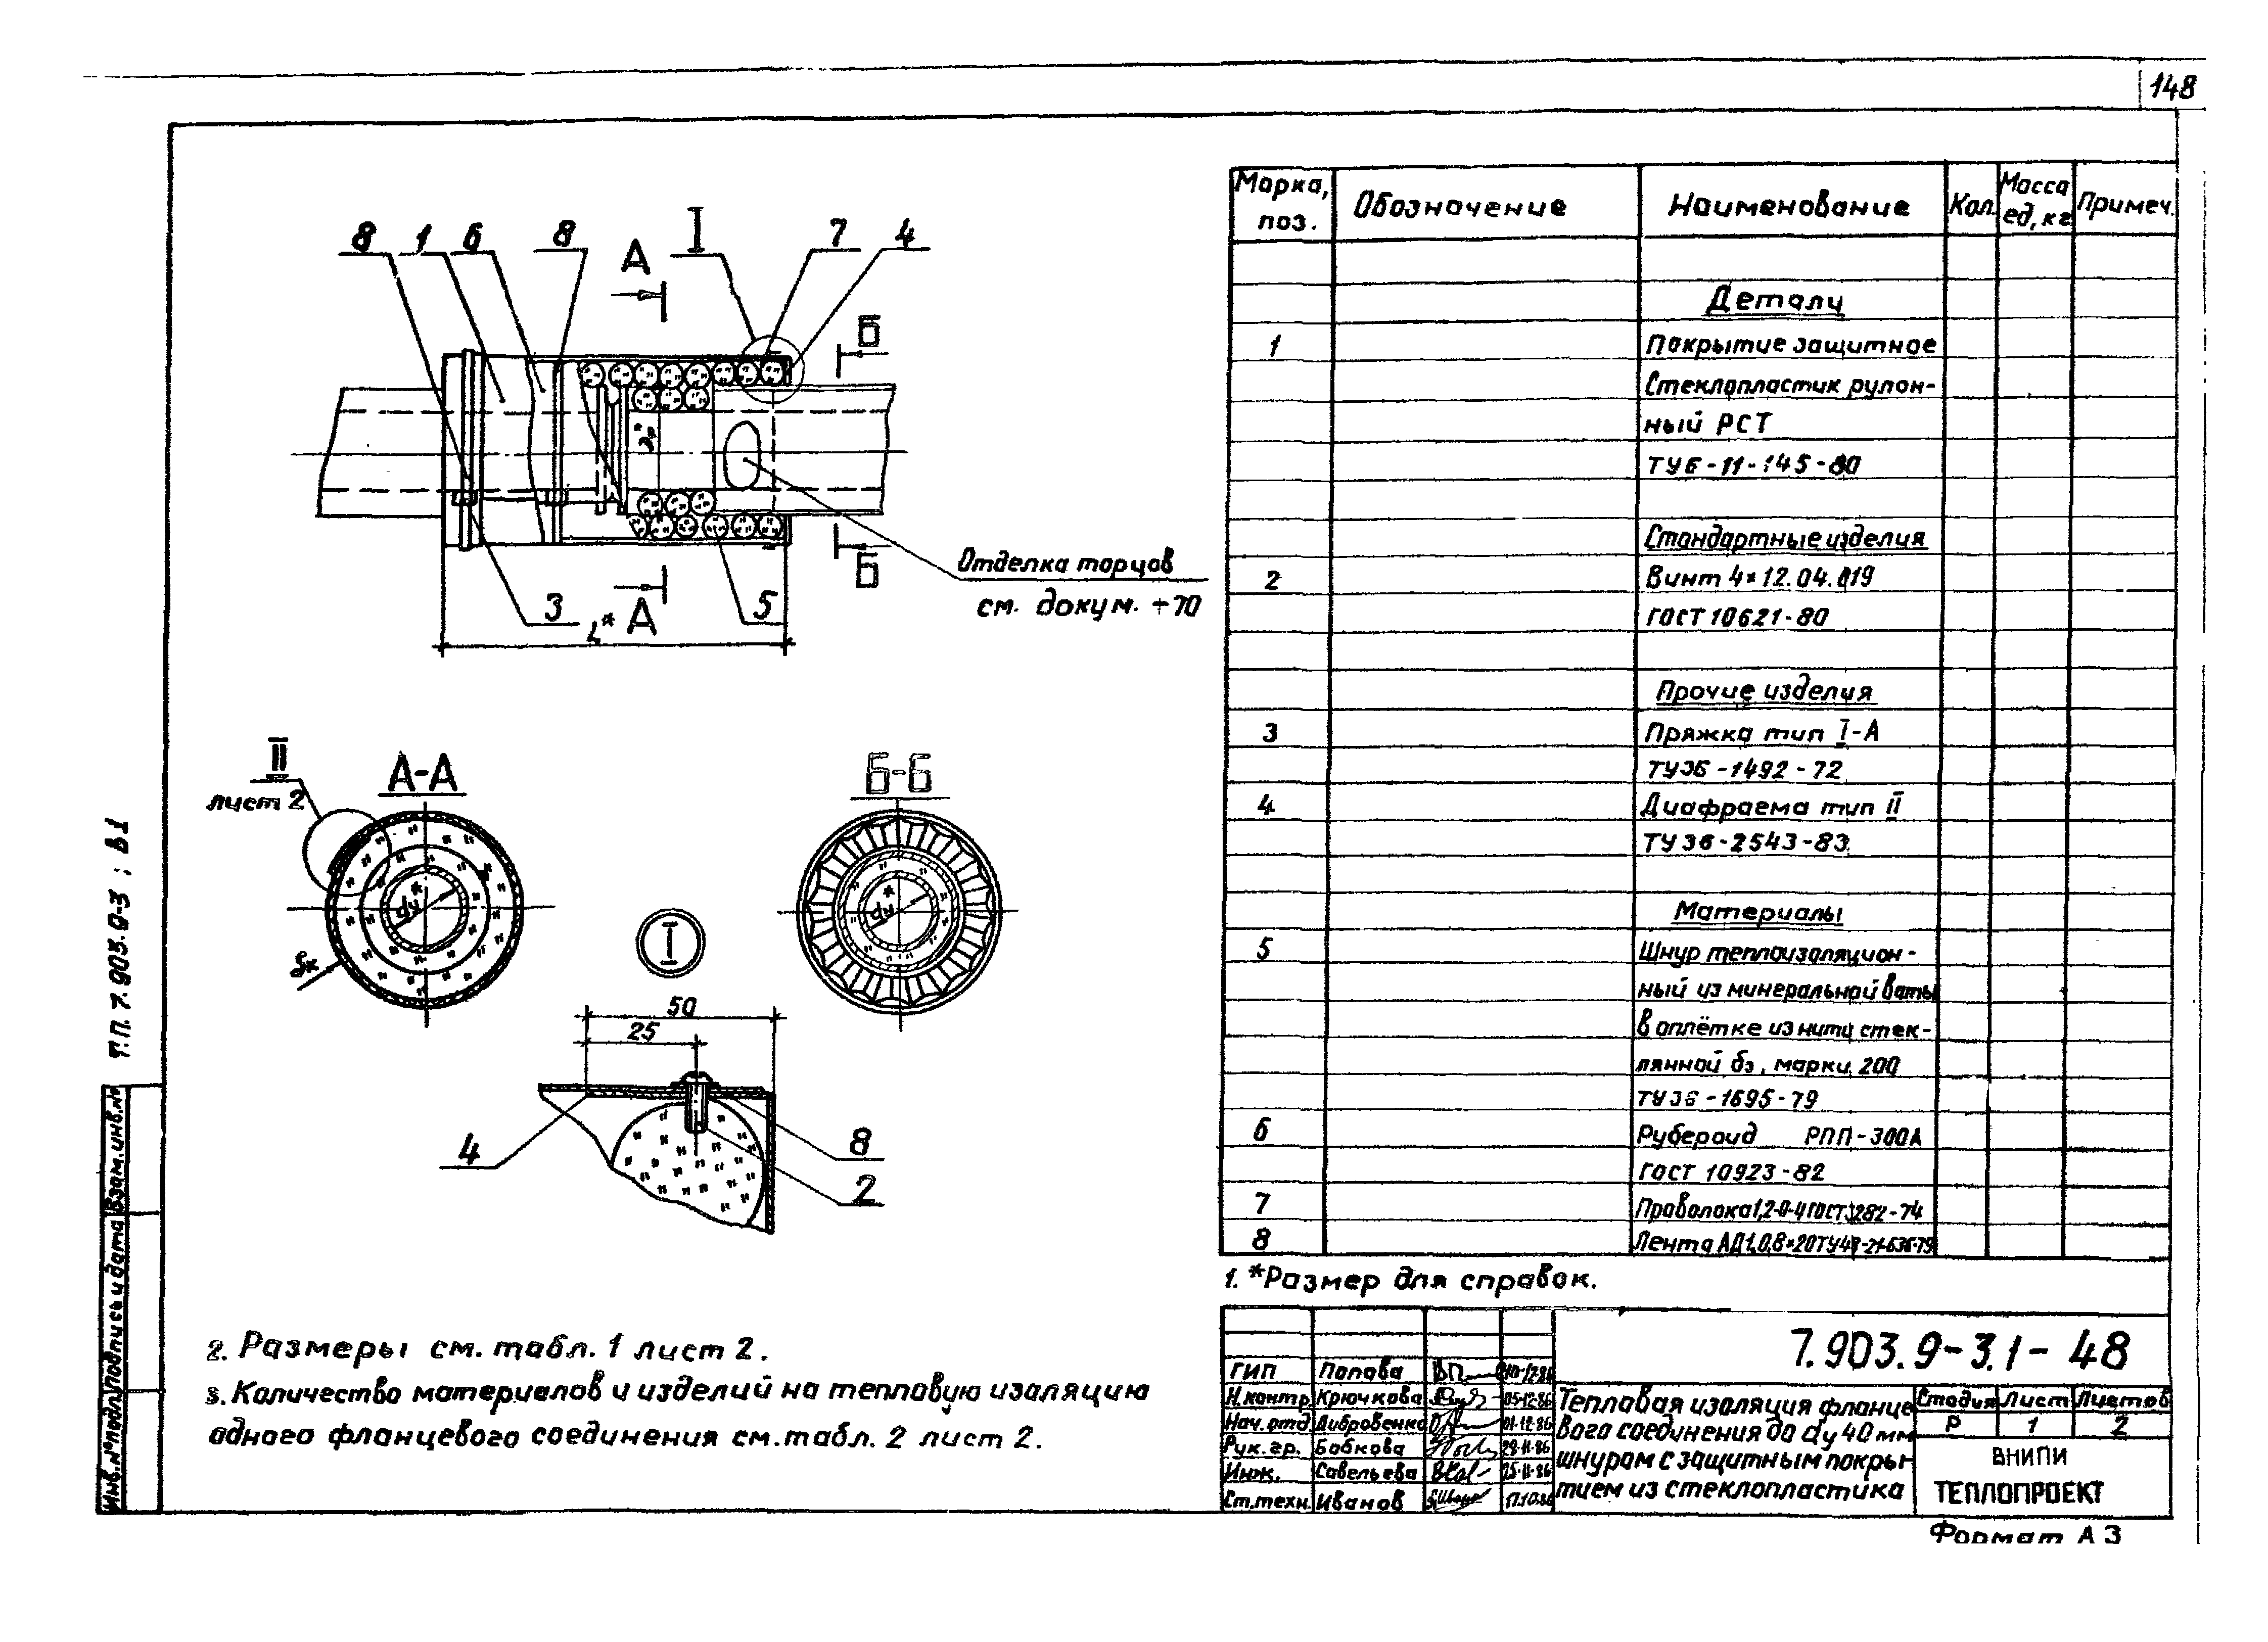 148
8 1 6 8 А I 7 4
Б
Отделка торцов
см. докум. -70
3 L* А 5 Б
II
лист 2
А-А
Б-Б
dу*
dу*
δк
I
50
25
4
8
2
2. Размеры см. табл. 1 лист 2.
3. Количество материалов и изделий на тепловую изоляцию
одного фланцевого соединения см. табл. 2 лист 2.
Т.П. 7.903.9-3; В1
Взам. инв. №
Подпись и дата
Инв. № подл.
Марка, поз. Обозначение Наименование Кол. Масса ед, кг Примеч.
Детали
1 Покрытие защитное
Стеклопластик рулон-
ный РСТ
ТУ6-11-145-80
Стандартные изделия
2 Винт 4×12.04.019
ГОСТ 10621-80
Прочие изделия
3 Пряжка тип I-А
ТУ36-1492-72
4 Диафрагма тип II
ТУ 36-2543-83
Материалы
5 Шнур теплоизоляцион-
ный из минеральной ваты
в оплётке из нити стек-
лянной бэ, марки 200
ТУ36-1695-79
6 Рубероид РПП-300А
ГОСТ 10923-82
7 Проволока 1,2-0-4 ГОСТ 3282-74
8 Лента АД1,0,8×20 ТУ48-21-636-79
1. *Размер для справок.
7.903.9-3.1-48
ГИП Попова 10-12-86
Н.контр. Крючкова 05-12-86
Нач.отд Дибровенко 01-12-86
Рук.гр. Бобкова 28-11-86
Инж. Савельева 25-11-86
Ст.техн. Иванов 17.10.86
Тепловая изоляция фланце
вого соединения до dу 40 мм
шнуром с защитным покры-
тием из стеклопластика
Стадия Лист Листов
Р 1 2
ВНИПИ
ТЕПЛОПРОЕКТ
Формат А3